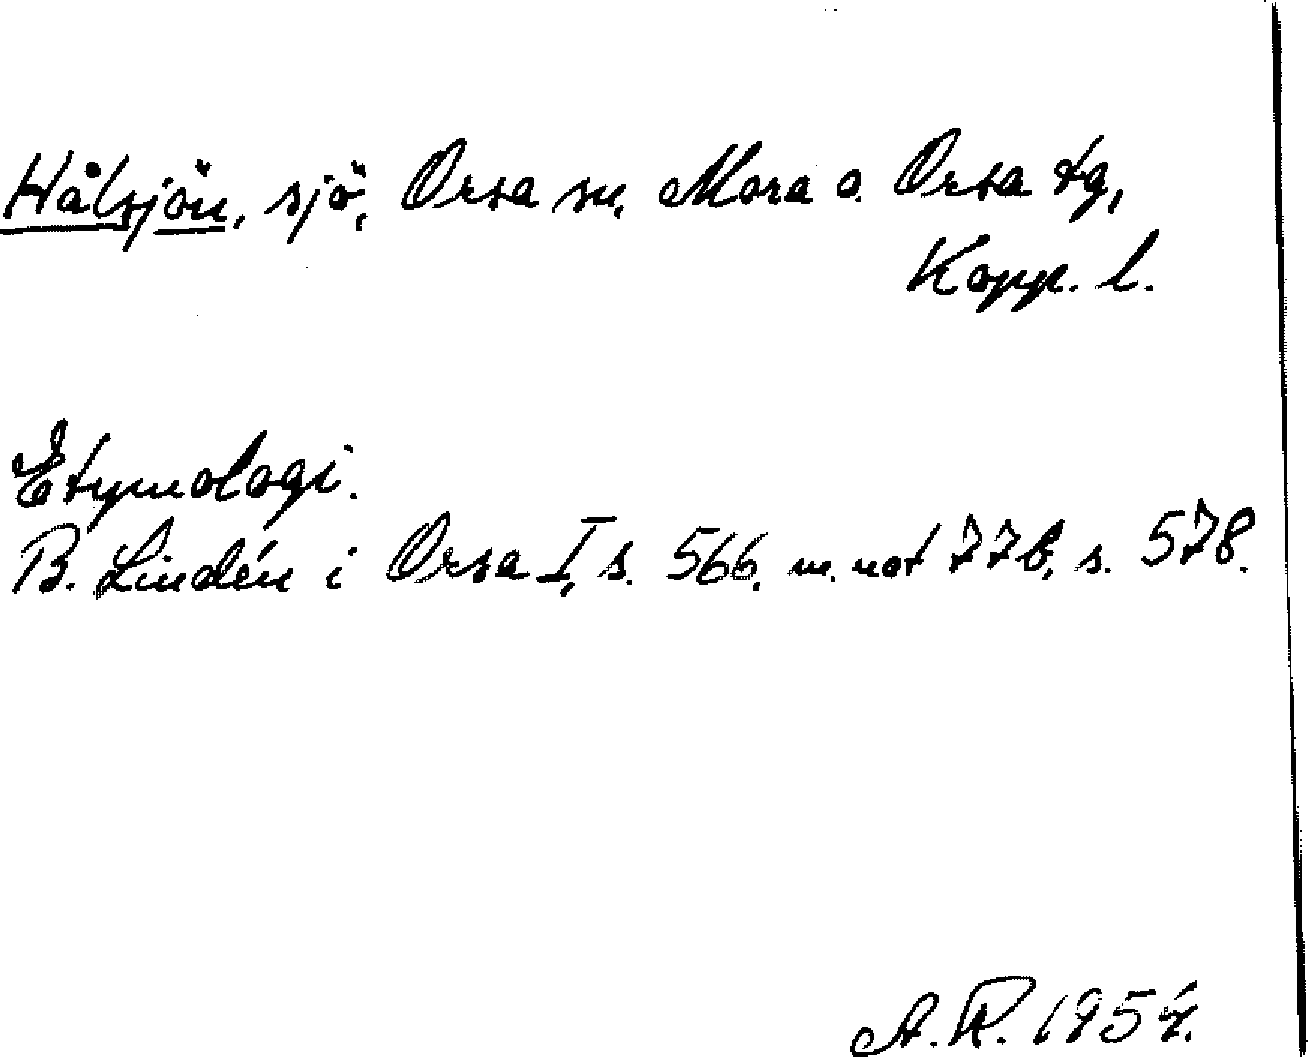 Hålsjön, sjö, Orsa sn, Mora o. Orsa tg,
Kopp. l.
Etymologi.
B. Lindén i Orsa I, s. 566, m. not 778, s. 578.
A.R. 1954.